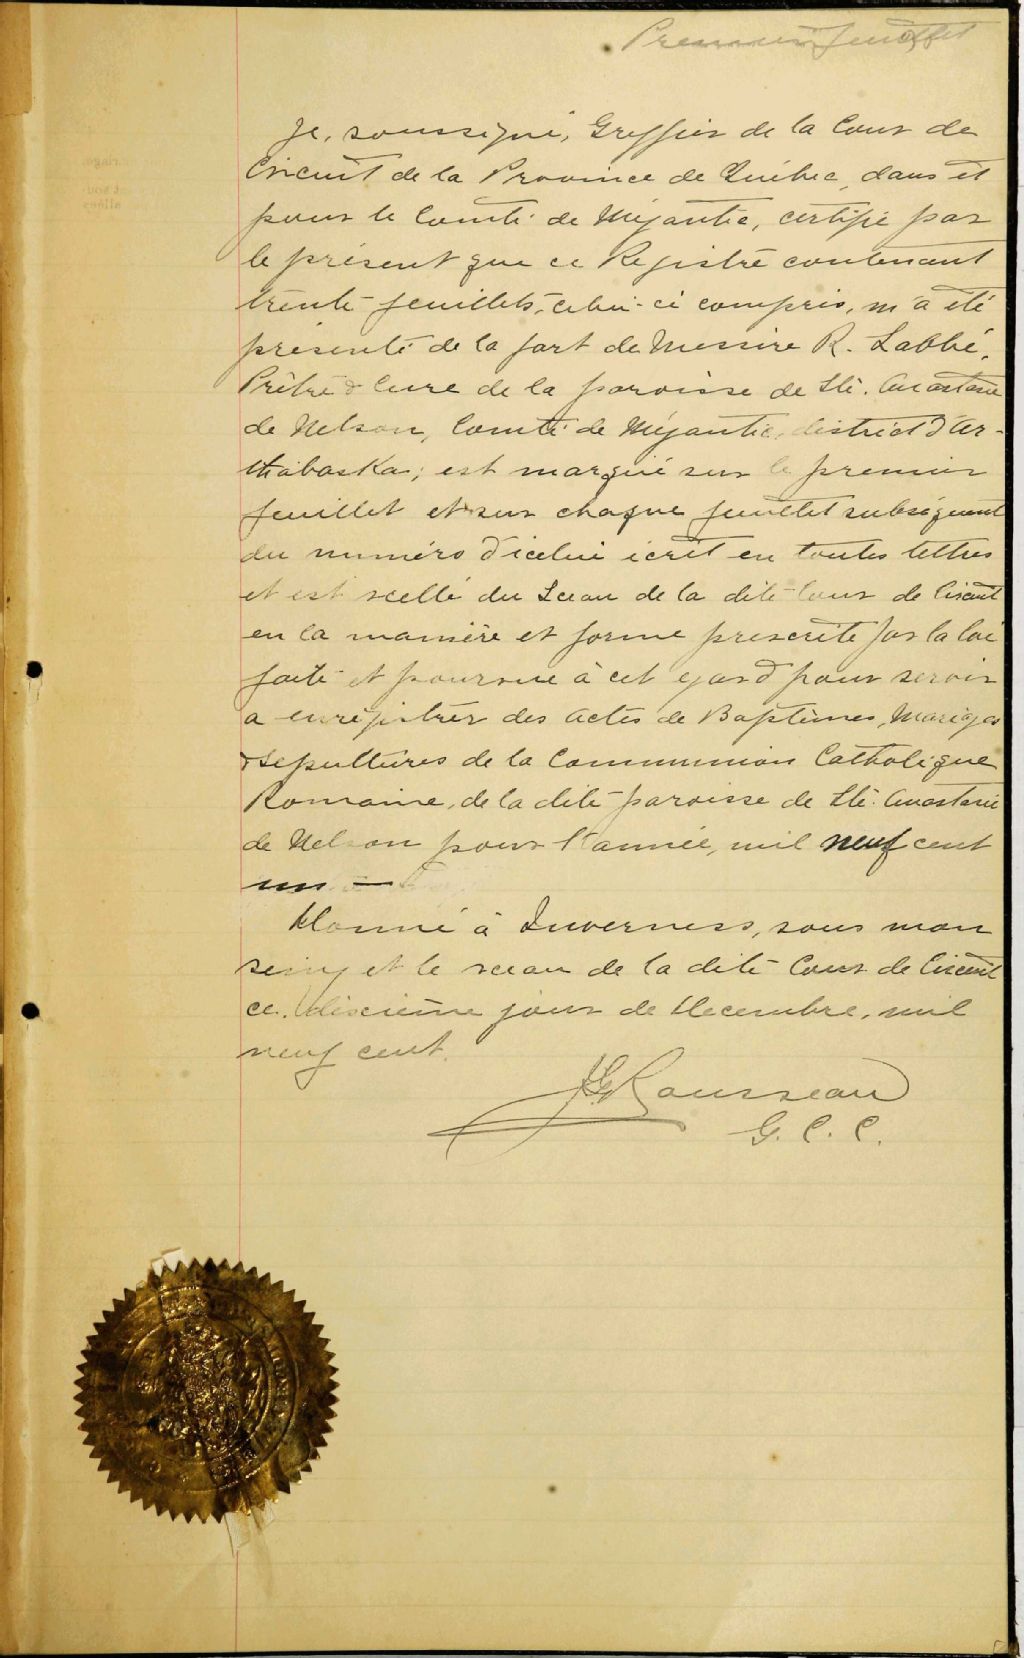 Premier feuillet
Je, soussigné, Greffier de la Cour de
Circuit de la Province de Québec, dans et
pour le Comté de Mégantic, certifie par
le présent que ce Registre contenant
trente feuillets, celui-ci compris, m'a été
présenté de la part de Messire R. Labbé,
Prêtre & Curé de la paroisse de Ste. Anastasie
de Nelson, Comté de Mégantic, district d'Ar-
thabaska; est marqué sur le premier
feuillet et sur chaque feuillet subséquent
du numéro d'icelui écrit en toutes lettres
et est scellé du Sceau de la dite Cour de Circuit
en la manière et forme prescrite par la loi
faite et pourvue à cet egard pour servir
a enrégistrer des actes de Baptêmes, Mariages
& Sepultures de la Communion Catholique
Romaine, de la dite paroisse de Ste. Anastasie
de Nelson pour l'année, mil neuf cent
un —
Donné à Inverness, sous mon
seing et le sceau de la dite Cour de Circuit
ce dixième jour de Decembre, mil
neuf cent.
Rousseau
G. C. C.